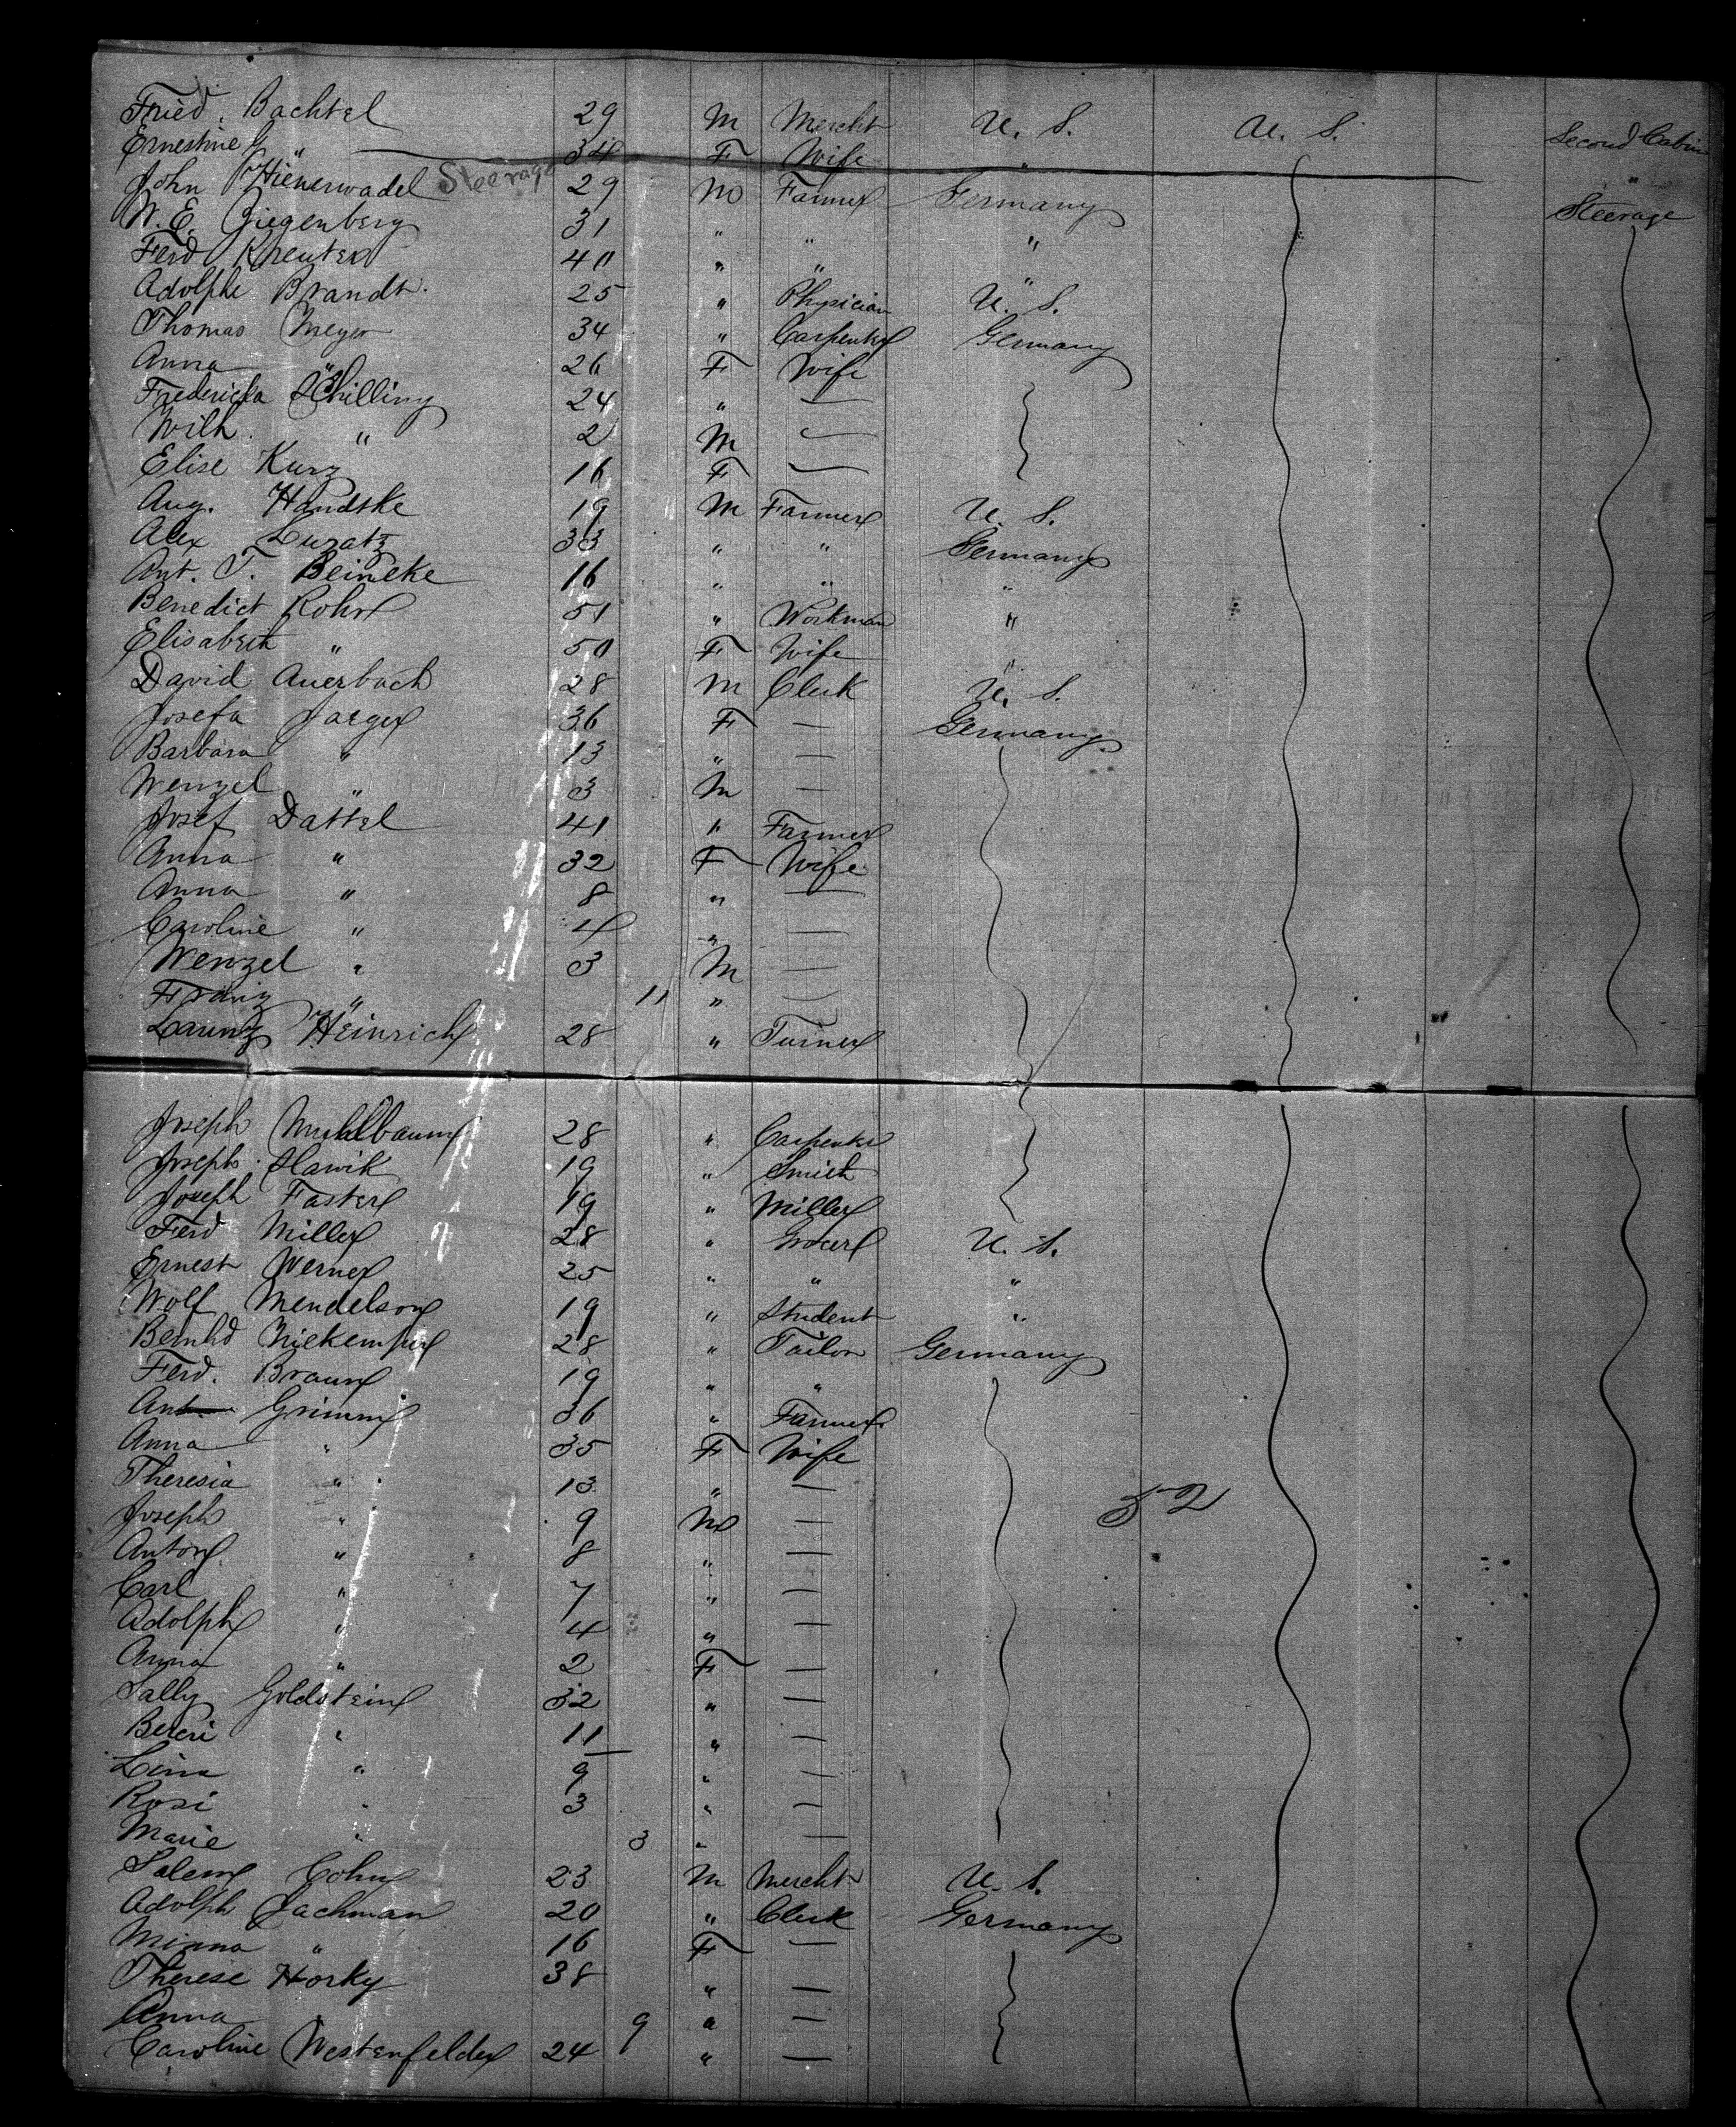 Fried. Bachtel 29 M Mercht U. S. U. S. Second Cabin
Ernestine G " 34 F Wife " "
Steerage
John Hienerwadel 29 M Farmer Germany Steerage
W. E. Ziegenberg 31 " " "
Ferd Kreuter 40 " " "
Adolphe Brandt. 25 " Physician U. S.
Thomas Meyer 34 " Carpenter Germany
Anna " 26 F Wife
Fredericka Schilling 24 " —
Wilh. " 2 M —
Elise Kurz 16 F —
Aug. Handtke 19 M Farmer U. S.
Alex Luratz 33 " " Germany
Ant. T. Beineke 16 " " "
Benedict Rohr 51 " Workman "
Elisabeth " 50 F Wife "
David Auerbach 28 M Clerk U. S.
Josefa Jaeger 36 F — Germany
Barbara " 13 " —
Wenzel " 3 M —
Josef Dattel 41 " Farmer
Anna " 32 F Wife
Anna " 8 " —
Caroline " 4 " —
Wenzel " 3 M —
Franz " 11 " —
Heinrich 28 " Turner
Joseph Muhlbaum 28 " Carpenter
Joseph Slawik 19 " Smith
Joseph Faster 19 " Miller
Ferd Miller 28 " Grocer U. S.
Ernest Werner 25 " " "
Wolf Mendelson 19 " Student "
Bernhd 28 " Tailor Germany
Ferd. Braun 19 " "
Ant. Grimm 36 " Farmer
Anna " 35 F Wife
Theresia " 13 " —
52
Joseph " 9 M —
Anton " 8 " —
Carl " 7 " —
Adolph " 4 " —
Anna " 2 F —
Sally Goldstein 32 " —
" 11 " —
Lina " 9 " —
Rosi " 3 " —
Marie " 3 " —
Salem Cohn 23 M Mercht U. S.
Adolph Lachman 20 " Clerk Germany
Minna " 16 F —
Therese Horky 38 " —
Anna 9 " —
Caroline Westenfelder 24 " —